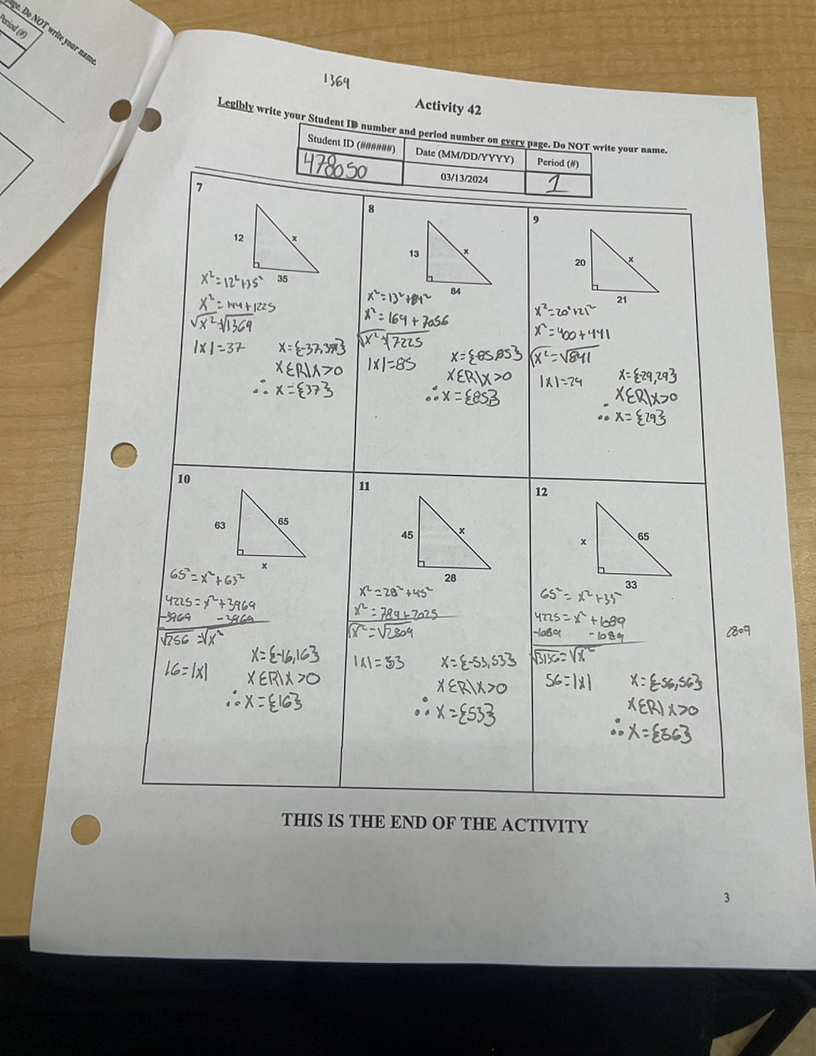 page. Do NOT write your name.
Period (#)
1369
Activity 42
Legibly write your Student ID number and period number on every page. Do NOT write your name.
Student ID (######) Date (MM/DD/YYYY) Period (#)
478050 03/13/2024 1
7
12 x
35
x²=12²+35²
x²=144+1225
√x²=√1369
|x|=37 x={-37,37}
XεR|x>0
∴ x={37}
8
13 x
84
x²=13²+84²
x²=169+7056
√x²=√7225
|x|=85 x={-85,85}
XεR|x>0
∴ x={85}
9
20 x
21
x²=20²+21²
x²=400+441
√x²=√841
|x|=29 x={-29,29}
XεR|x>0
∴ x={29}
10
63 65
x
65²=x²+63²
4225=x²+3969
-3969 -3969
√256=√x²
16=|x| x={-16,16}
XεR|x>0
∴ x={16}
11
45 x
28
x²=28²+45²
x²=784+2025
√x²=√2809
|x|=53 x={-53,53}
XεR|x>0
∴ x={53}
12
x 65
33
65²=x²+33²
4225=x²+1089
-1089 -1089
√3136=√x²
56=|x| x={-56,56}
XεR|x>0
∴ x={56}
2809
THIS IS THE END OF THE ACTIVITY
3